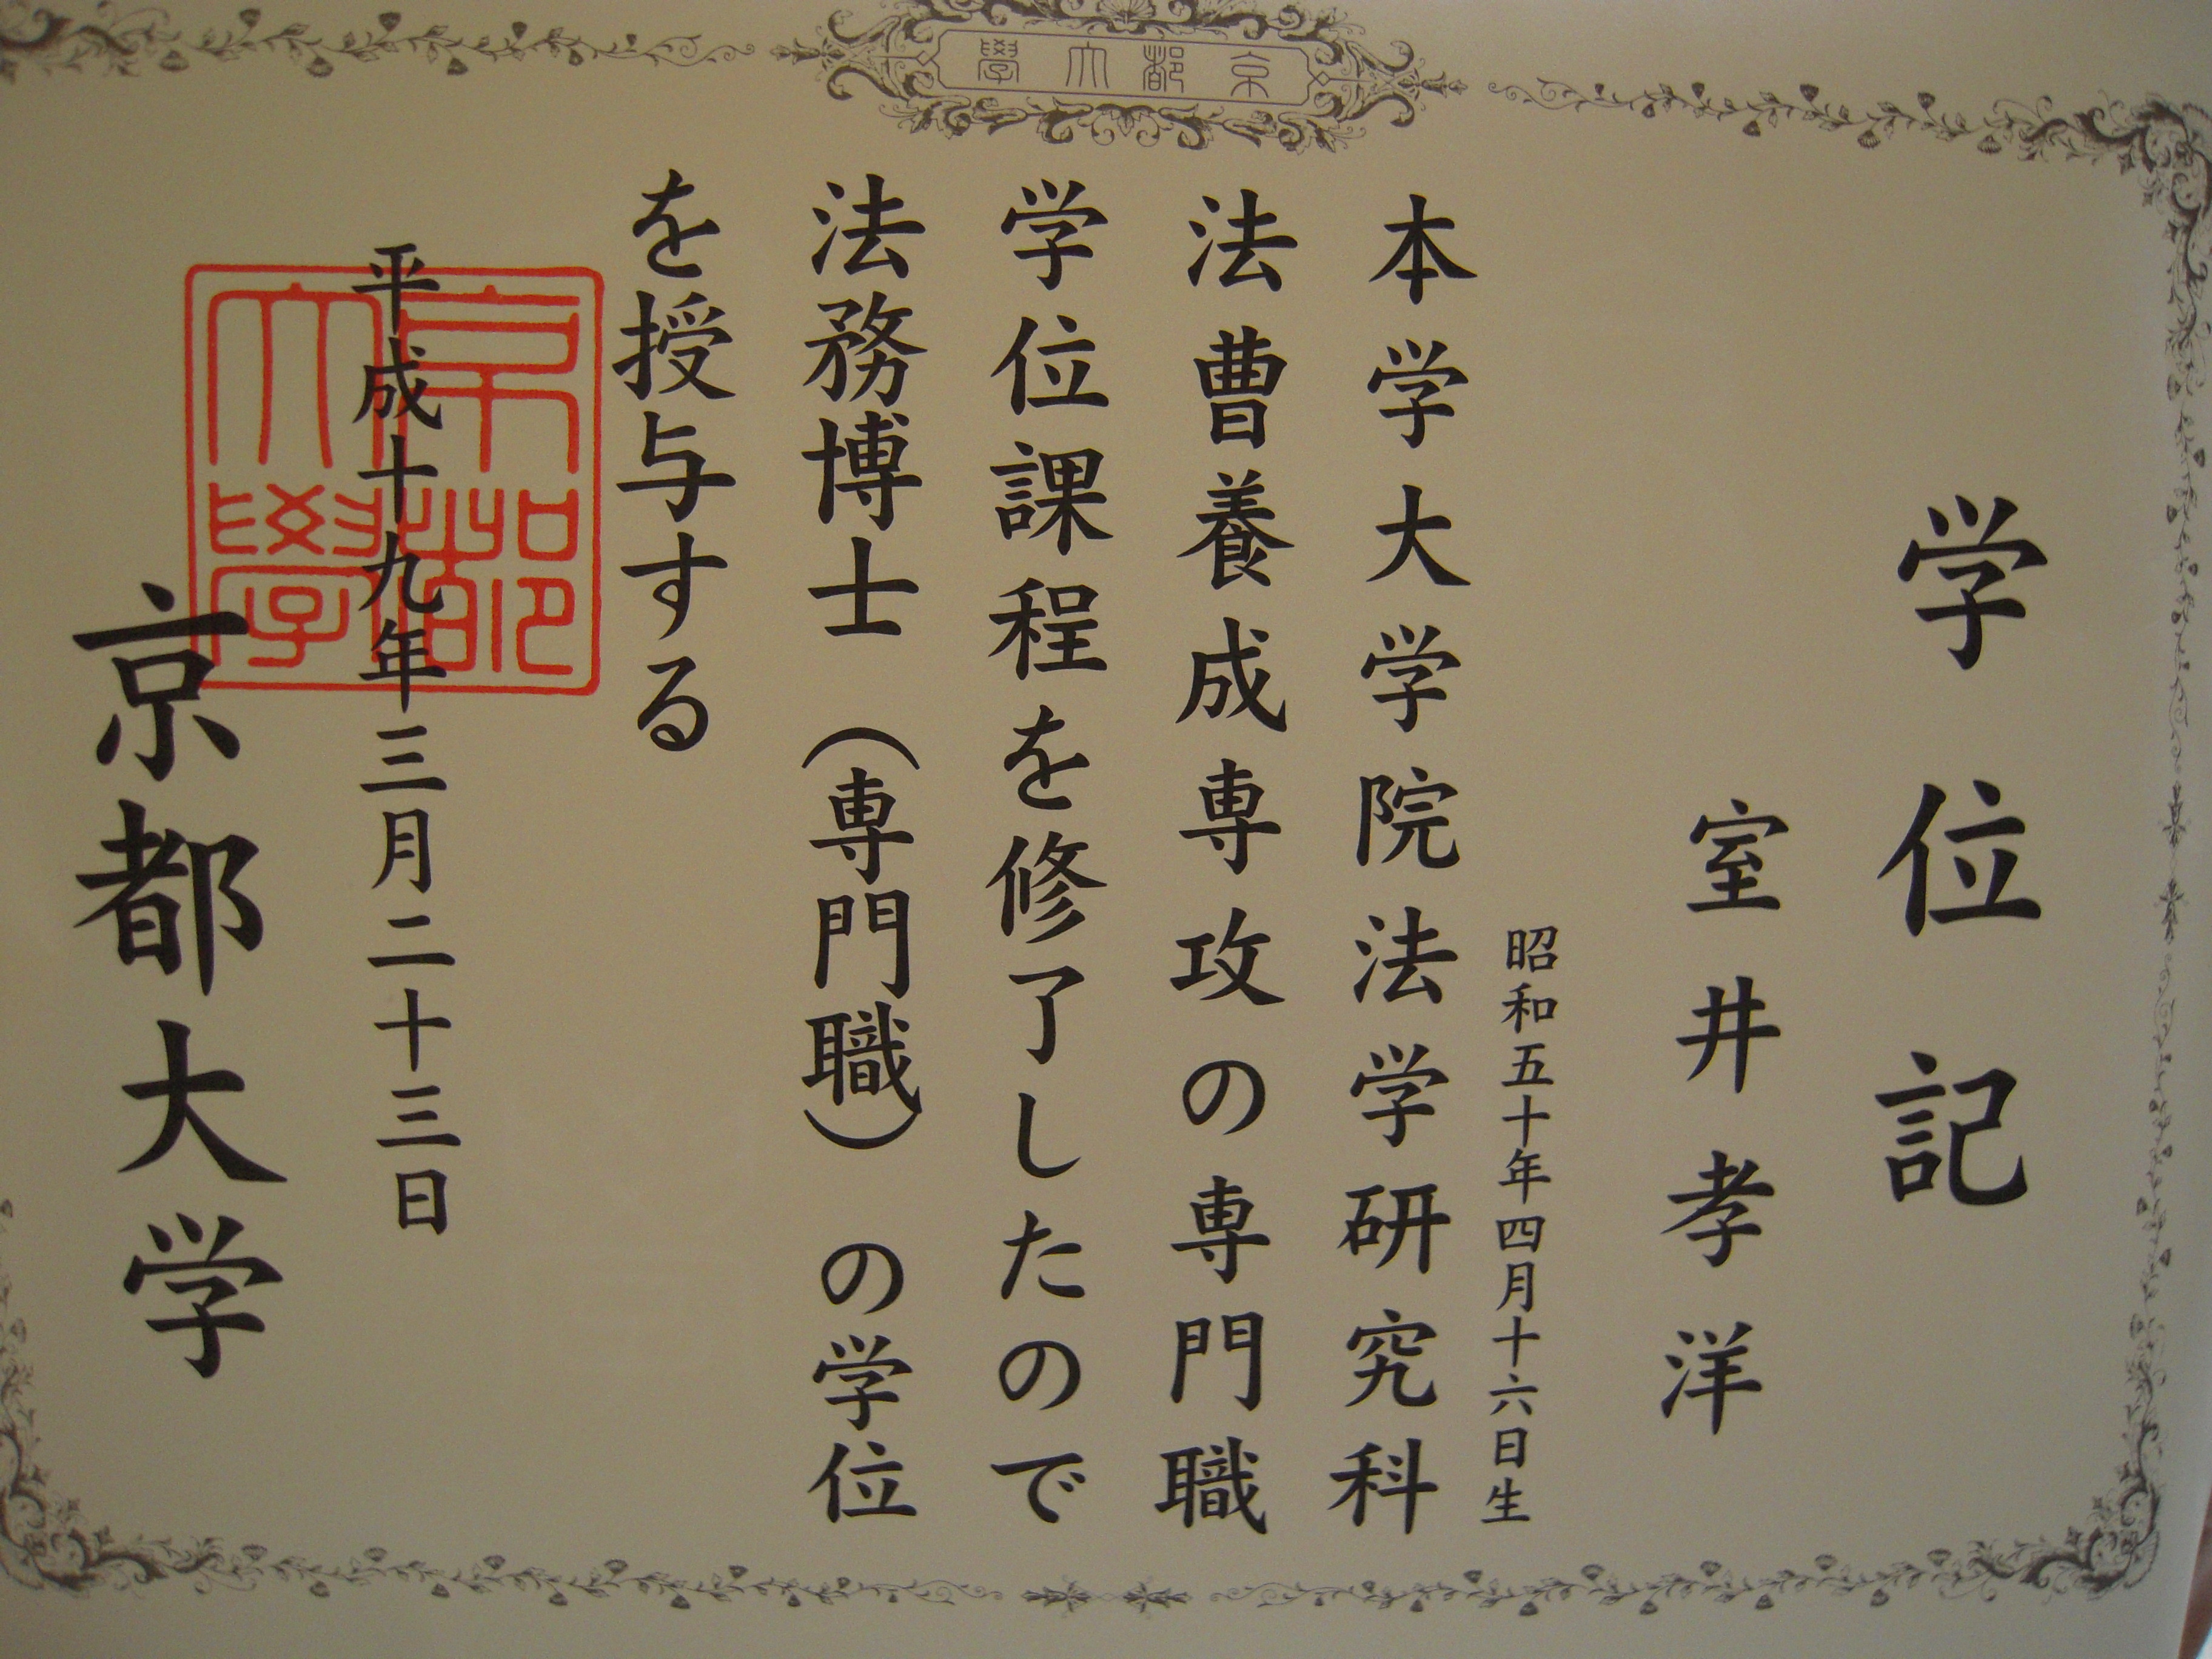 京都大學
学位記
室井孝洋
昭和五十年四月十六日生
本学大学院法学研究科
法曹養成専攻の専門職
学位課程を修了したので
法務博士（専門職）の学位
を授与する
平成十九年三月二十三日
京都大学
京都大學